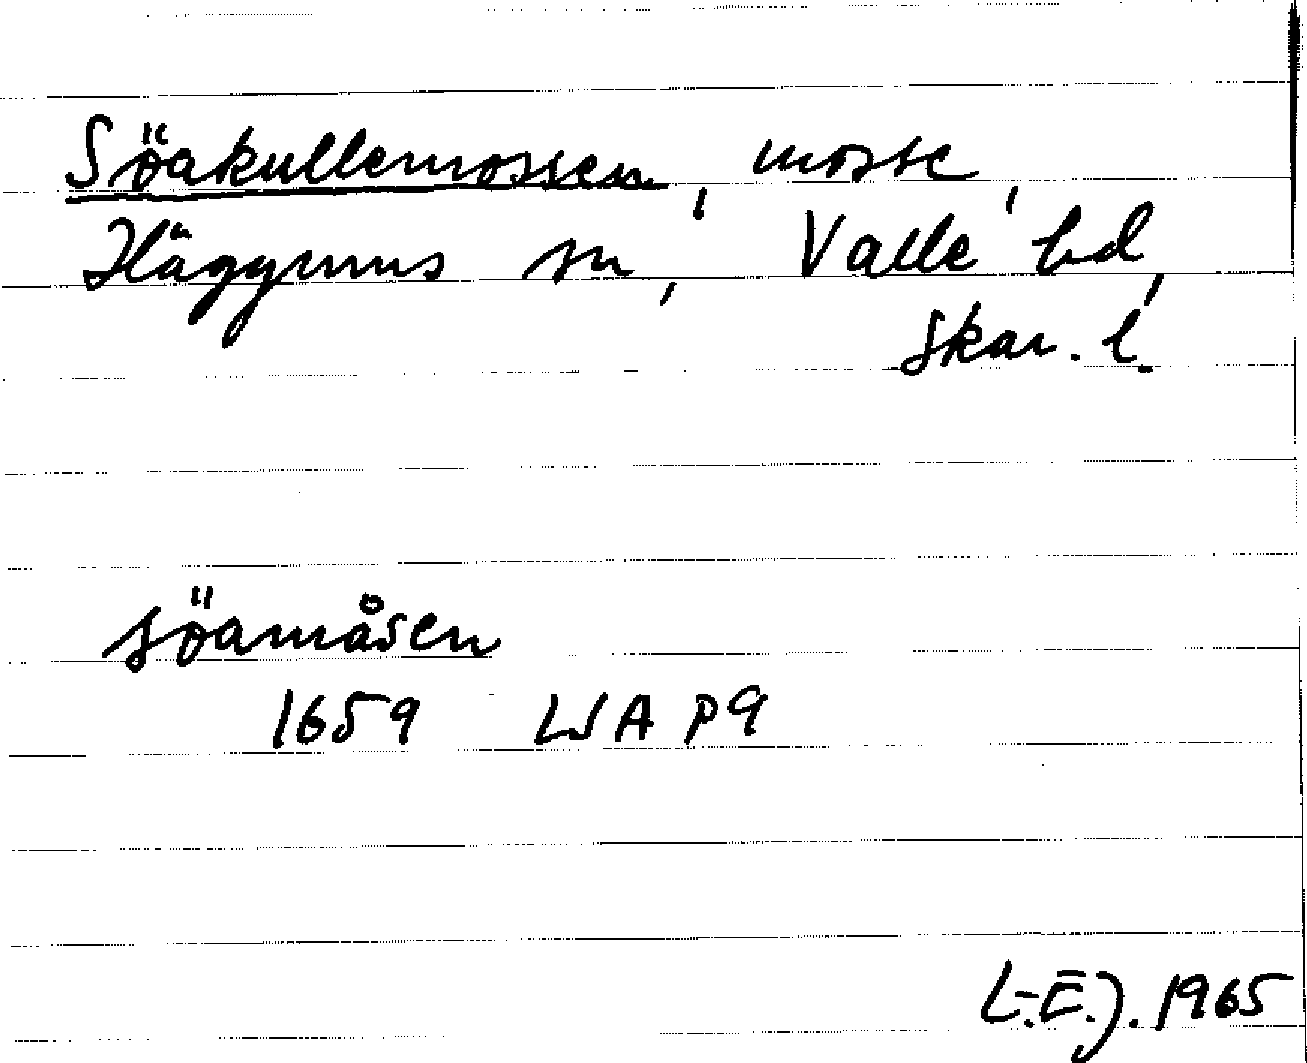 Söakullemossen, mosse,
Häggums sn, Valle hd,
Skar. l.
söamåsen
1659 LSA P9
L.E.J. 1965